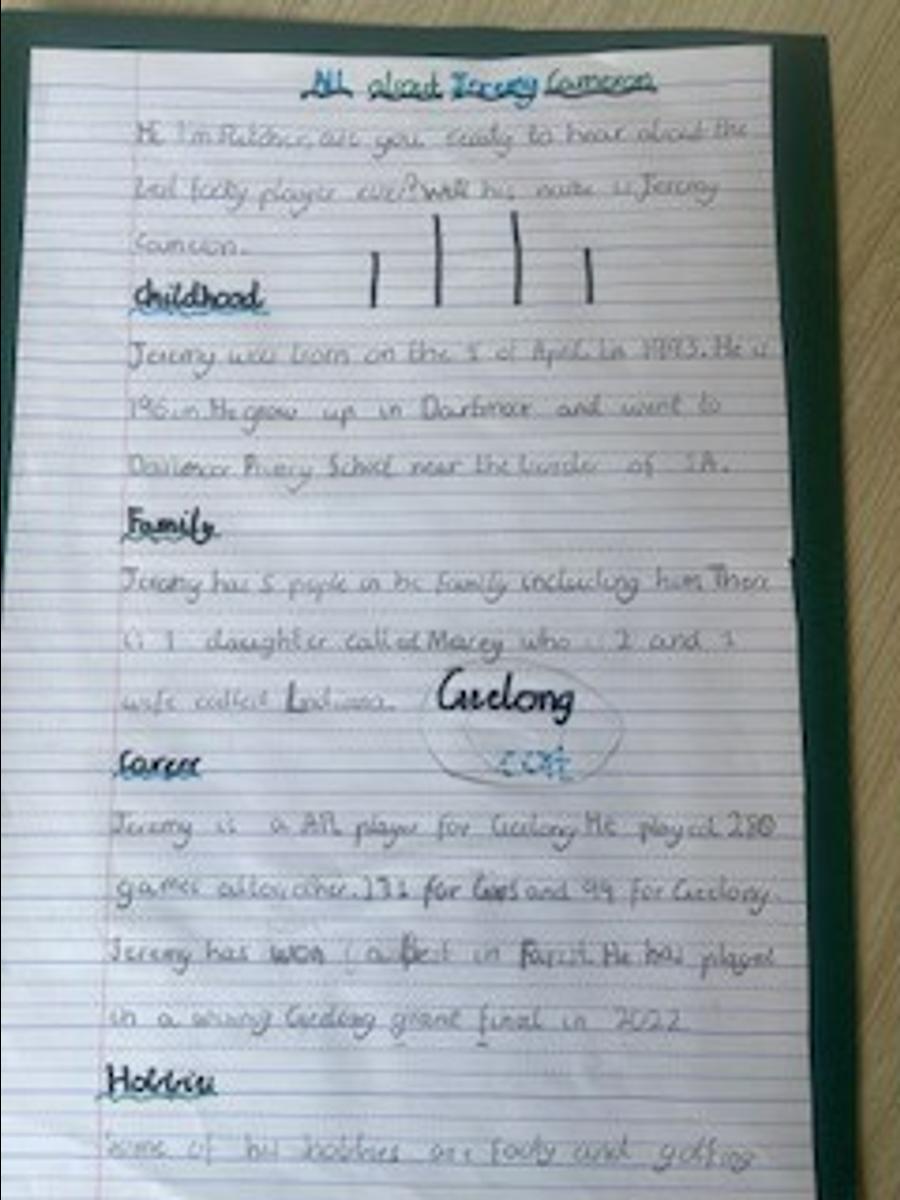 All about Jeremy Cameron
Hi I'm Fletcher, are you ready to hear about the
best footy player ever? Well his name is Jeremy
Cameron.
Childhood
Jeremy was born on the 1 of April in 1993. He is
196cm. He grew up in Dartmoor and went to
Dartmoor School near the border of SA.
Family
Jeremy has 5 people in his family including him. There
is 1 daughter called Macey who is 2 and 1
wife called Indiana.
Geelong
cats
Career
Jeremy is a AFL player for Geelong He played 280
games for and 99 for Geelong.
Jeremy has won in He has played
in a Geelong grant final in 2022
Hobbies
Some of his hobbies are footy and golfing